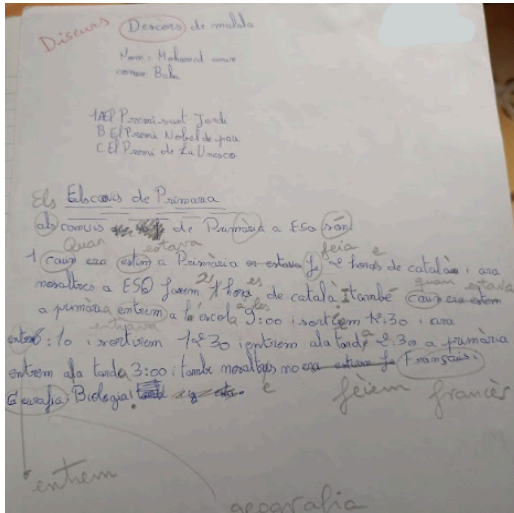 Discurs Descors de malala
Nom: Mohamed
1 A El Premi sant Jordi
B El Premi Nobel de pau
C El Premi de La Unesco
Els Elscanvis de Primaria
als canvis de Primària a ESO són
Quan estava feia e
1 caun era estem a Primària f 2 hores de català i ara
2 es quan estava
nosaltres a ESO farem 1 hora de català Itambé caun era estem
a les
a primària entrem a la escola 9:00 i sortiem 12:30 i ara
entrava
entrem 8:10 i sortirem 1:30 i entrem ala tarda 2:30 a primària
entrem ala tarda 3:00 i tambe nosaltres no era Français i
Geurafia Biologia è feiem francès
entrem
geografia